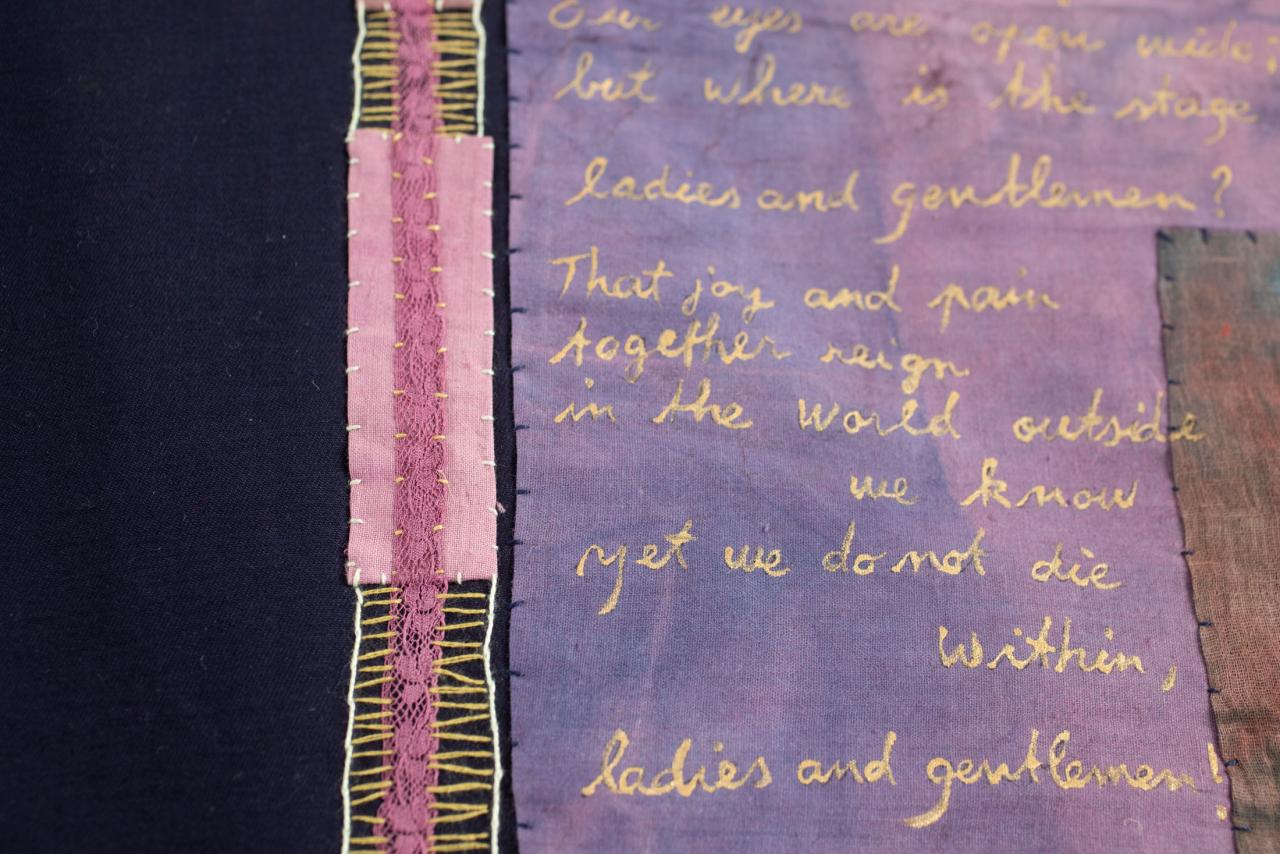 Our eyes are open wide;
but where is the stage
ladies and gentlemen?
That joy and pain
together reign
in the world outside
we know
yet we do not die
within,
ladies and gentlemen!